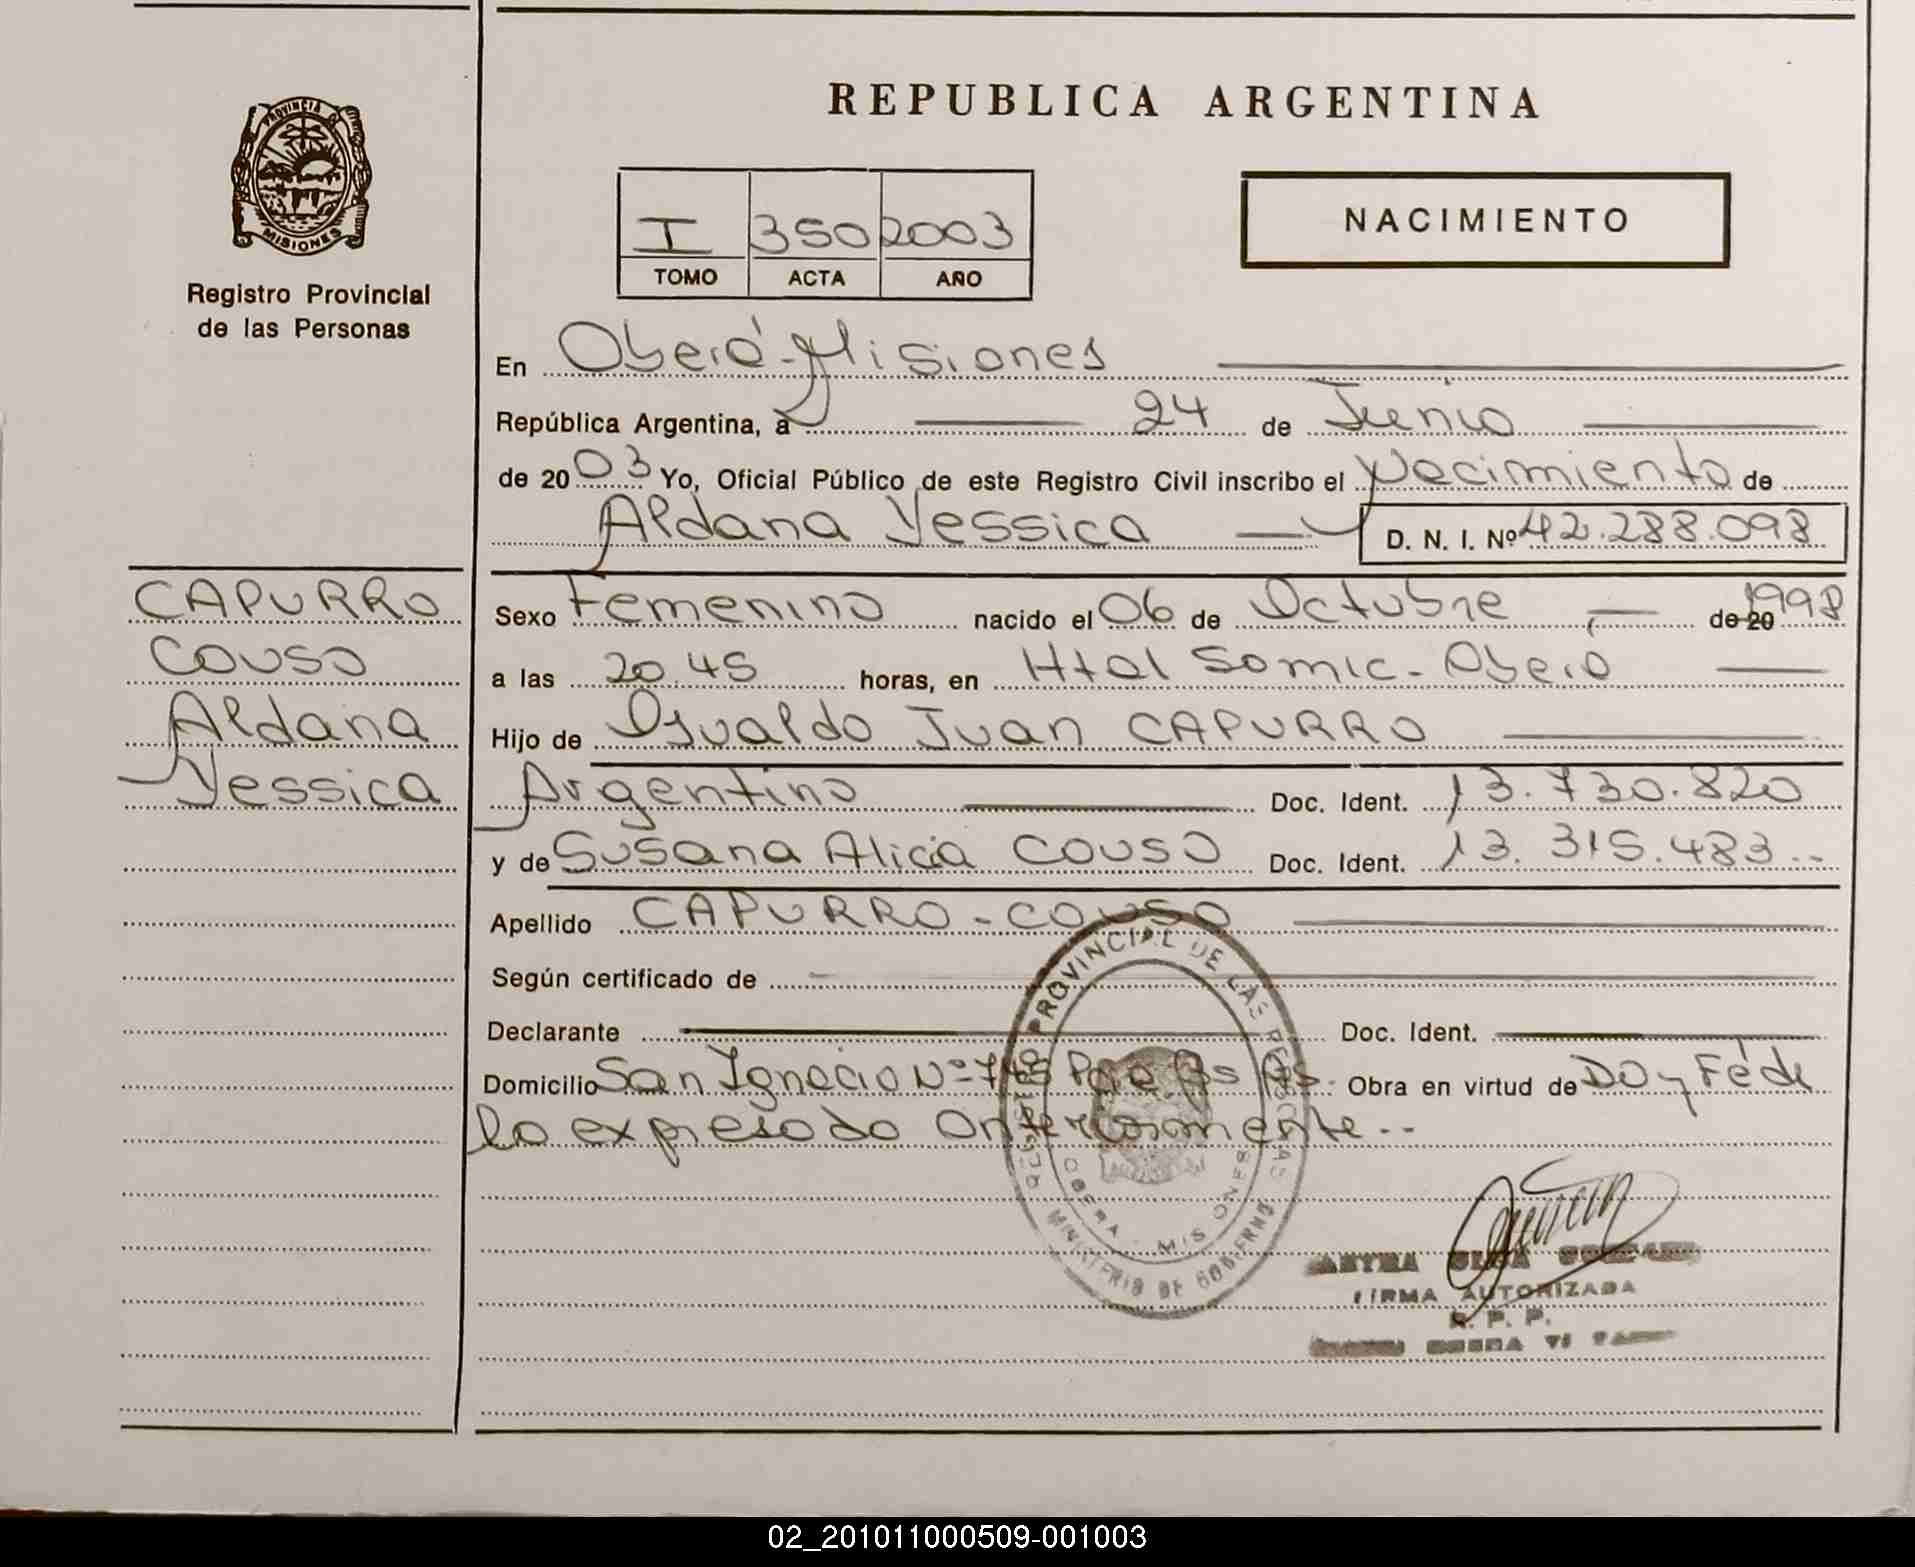 REPUBLICA ARGENTINA
PROVINCIA DE
MISIONES
Registro Provincial
de las Personas
I 350 2003
TOMO ACTA AÑO
NACIMIENTO
En Oberá-Misiones
República Argentina, a 24 de Junio
de 2003 Yo, Oficial Público de este Registro Civil inscribo el Nacimiento de
Aldana Yessica D. N. I. Nº 42.288.098
CAPURRO
COUSO
Aldana
Yessica
Sexo Femenino nacido el 06 de Octubre de 20 1998
a las 20.45 horas, en Htal Samic - Oberá
Hijo de Osvaldo Juan CAPURRO
Argentino Doc. Ident. 13.730.820
y de Susana Alicia COUSO Doc. Ident. 13.315.483..
Apellido CAPURRO - COUSO
Según certificado de
Declarante Doc. Ident.
Domicilio San Ignacio Nº Bs As. Obra en virtud de DOy Fé de
lo expresado anteriormente..
REGISTRO PROVINCIAL DE LAS PERSONAS
OBERA - MISIONES
MINISTERIO DE GOBIERNO
OLGA
FIRMA AUTORIZADA
R. P. P.
02_201011000509-001003